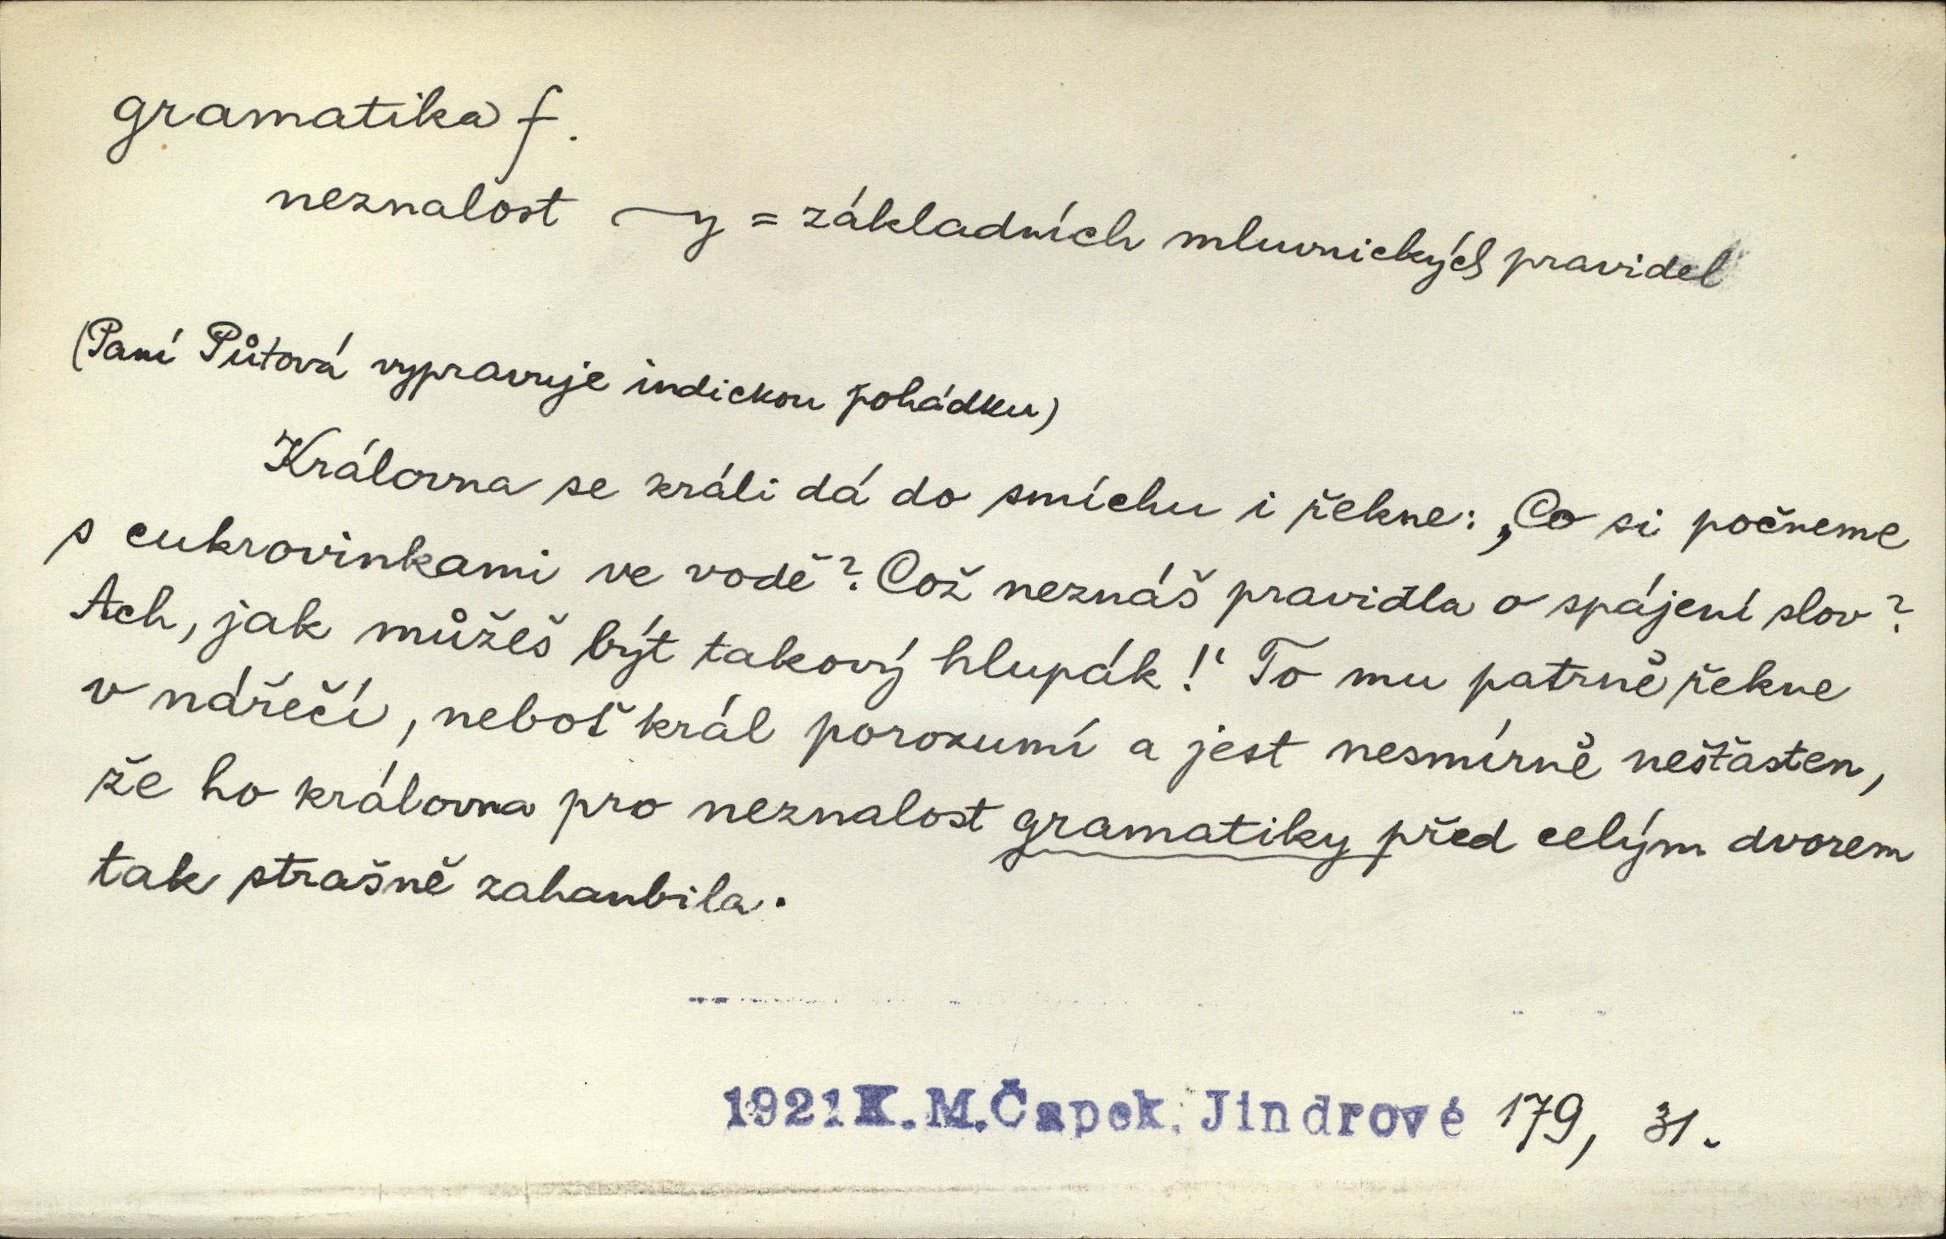 gramatika f.
neznalost ~y = základních mluvnických pravidel
(Paní Půtová vypravuje indickou pohádku)
Královna se králi dá do smíchu i řekne: „Co si počneme
s cukrovinkami ve vodě? Což neznáš pravidla o spájení slov?
Ach, jak můžeš být takový hlupák!“ To mu patrně řekne
v nářečí, neboť král porozumí a jest nesmírně nešťasten,
že ho královna pro neznalost gramatiky před celým dvorem
tak strašně zahanbila.
1921 K.M.Čapek, Jindrové 179, 31.